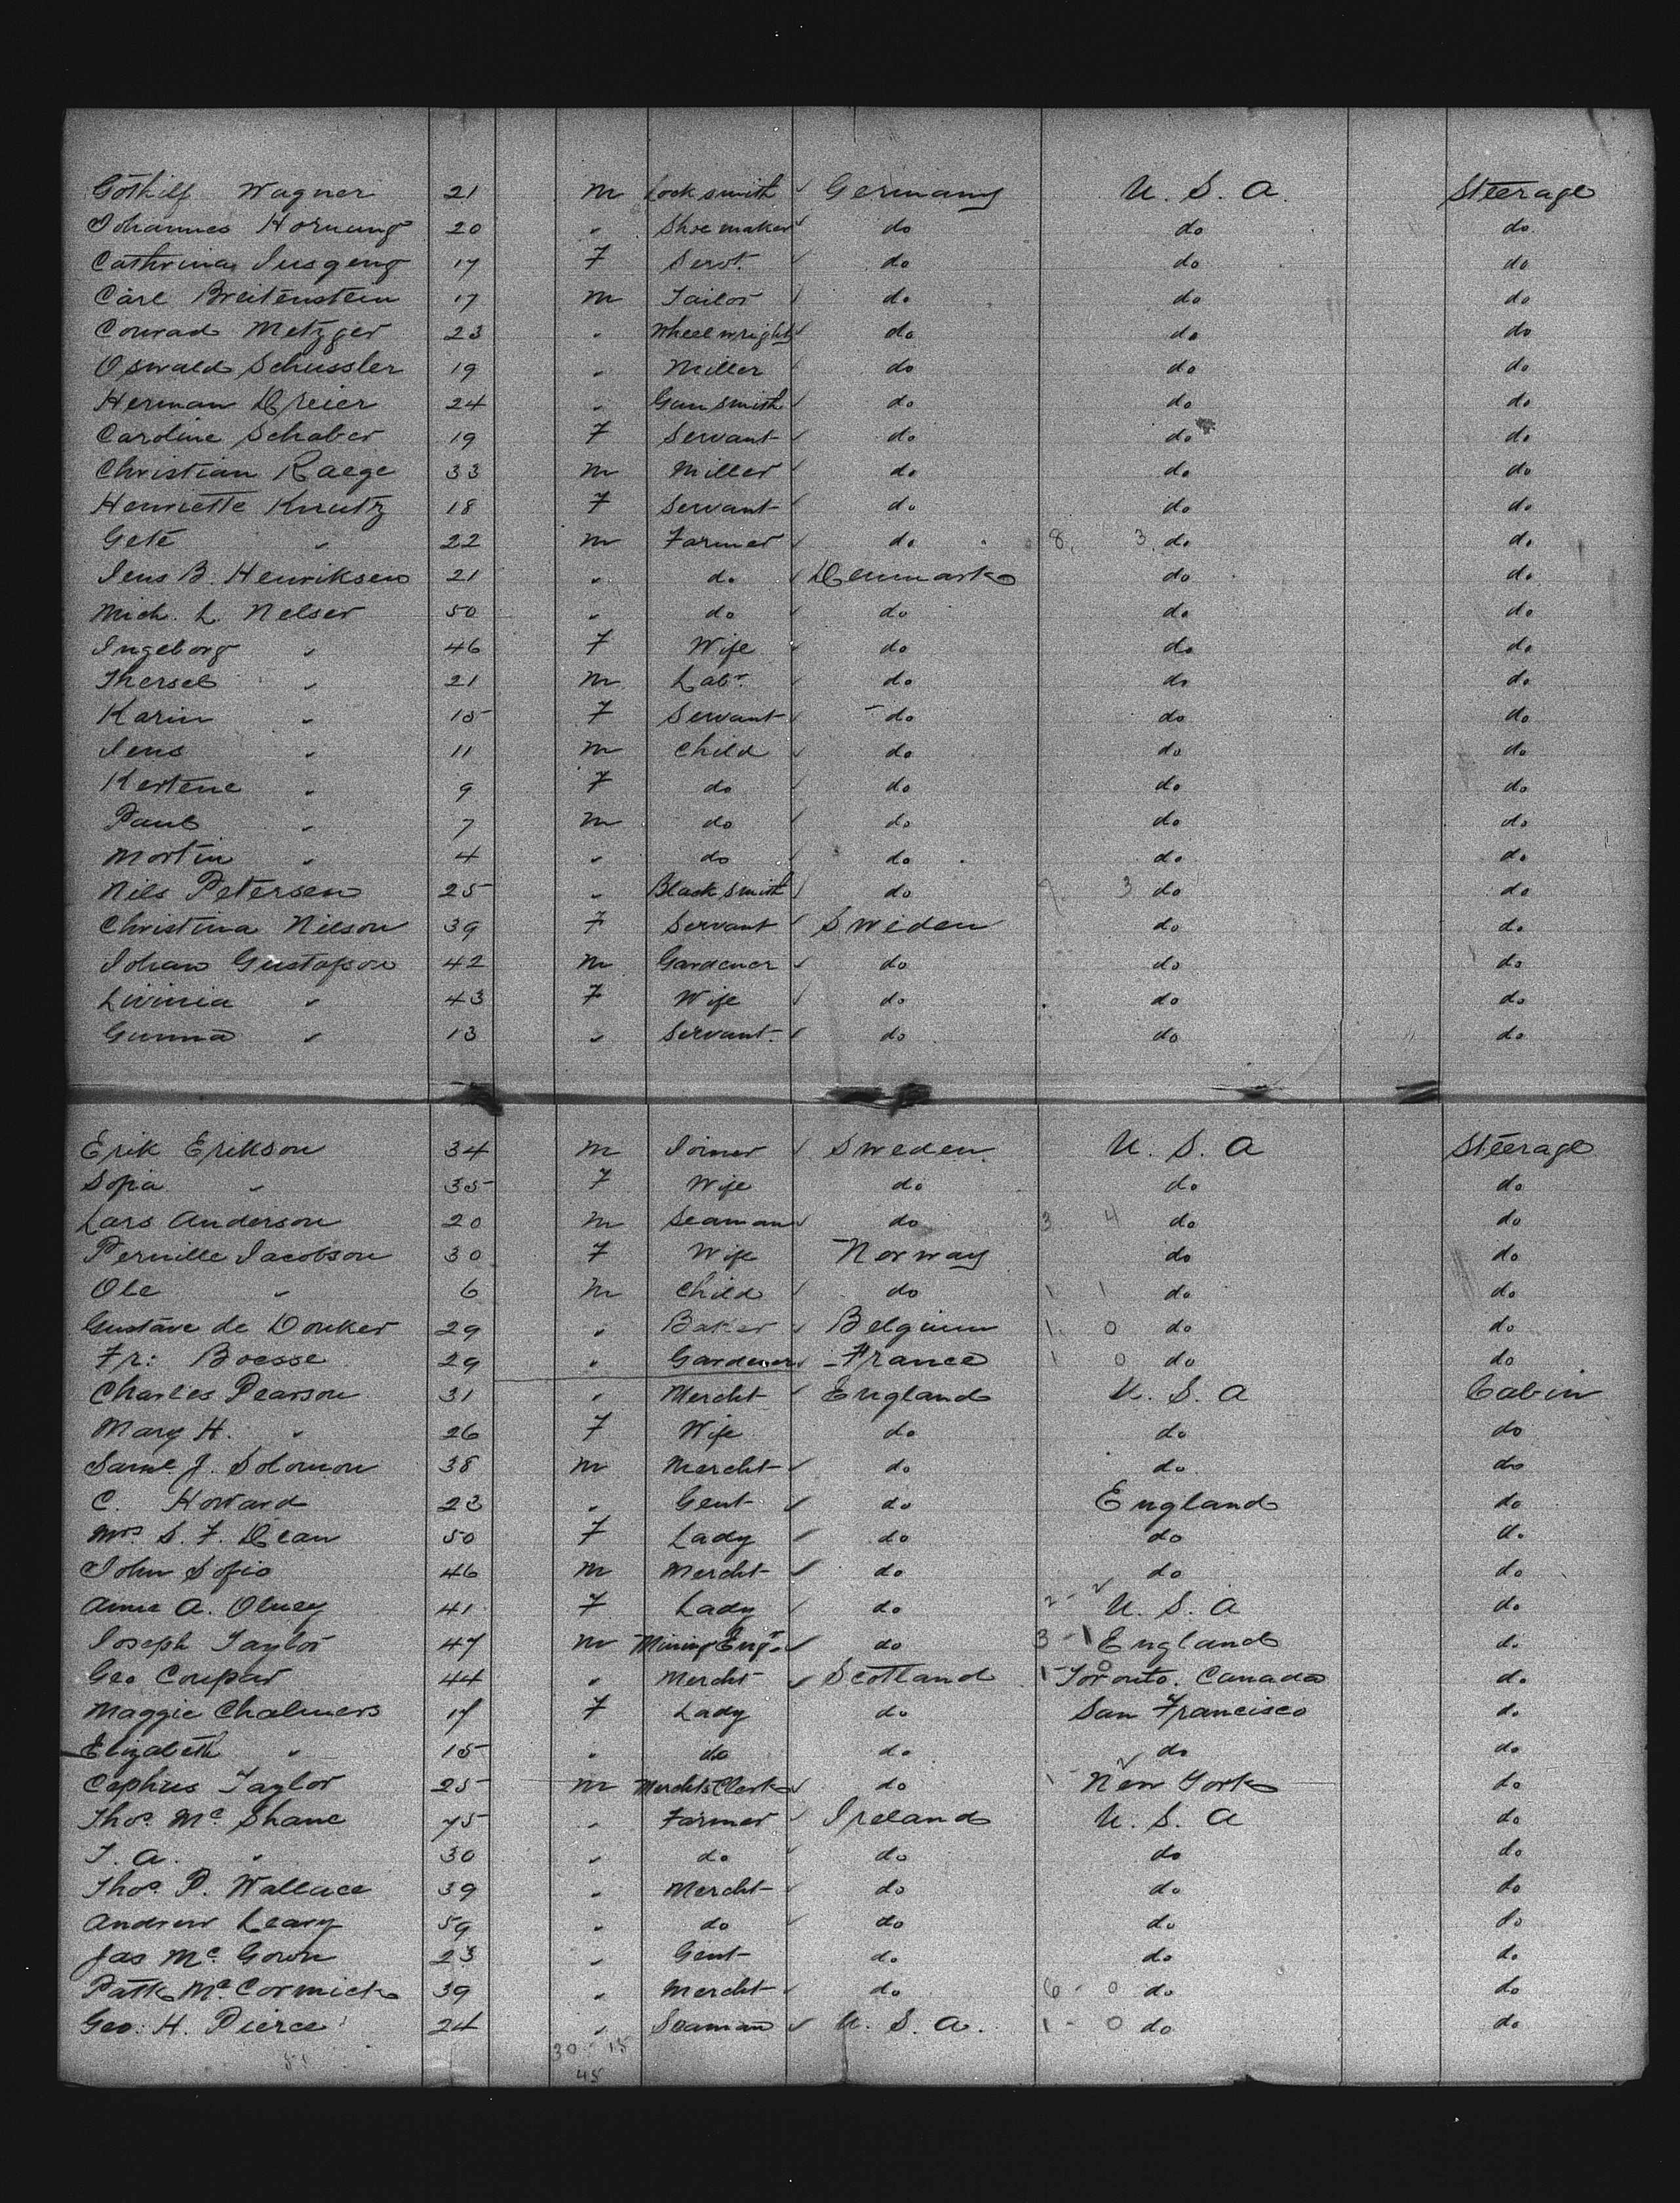 Gothilf Wagner 21 M Locksmith Germany U. S. A. Steerage
Johannes Hornung 20 " Shoemaker do do do
Cathrina Insgeng 17 F Servt. do do do
Carl Breitenstein 17 M Tailor do do do
Conrad Metzger 23 " Wheelwright do do do
Oswald Schussler 19 " Miller do do do
Herman Dreier 24 " Gunsmith do do do
Caroline Schaber 19 F Servant do do do
Christian Raege 33 M Miller do do do
Henriette Knutz 18 F Servant do do do
Gete " 22 M Farmer do 8. 3. do do
Jens B. Henriksen 21 " do Denmark do do
Mich. L. Nelser 50 " do do do do
Ingeborg " 46 F Wife do do do
Thersel " 21 M Labr. do do do
Karin " 15 F Servant do do do
Jens " 11 M Child do do do
Kertene " 9 F do do do do
Paul " 7 M do do do do
Mortin " 4 " do do do do
Nils Petersen 25 " Blacksmith do 7 3 do do
Christina Nilson 39 F Servant Sweden do do
Johan Gustafson 42 M Gardener do do do
Livinia " 43 F Wife do do do
Gunna " 13 " Servant do do do
Erik Erikson 34 M Joiner Sweden U. S. A Steerage
Sofia " 35 F Wife do do do
Lars Anderson 20 M Seaman do 3 4 do do
Pernille Jacobson 30 F Wife Norway do do
Ole " 6 M Child do 1 1 do do
Gustave de Donker 29 " Baker Belgium 1. 0 do do
Fr: Boesse 29 " Gardener France 1 0 do do
Charles Pearson 31 " Mercht England U. S. A Cabin
Mary H. " 26 F Wife do do do
Saml J. Solomon 38 M Mercht do do do
C. Howard 23 " Gent do England do
Mrs S. F. Dean 50 F Lady do do do
John Sofio 46 M Mercht do do do
Anne A. Olney 41 F Lady do 2 - U. S. A do
Joseph Taylor 47 M Mining Engr do 3 - 1 England do
Geo Coupar 44 " Mercht Scotland 1 - 0 Toronto. Canada do
Maggie Chalmers 17 F Lady do San Francisco do
Elizabeth " 15 " do do do do
Cephus Taylor 25 M Merchts Clerk do 1 - 2 New York do
Thos Mc Shane 75 " Farmer Ireland U. S. A do
T. A. " 30 " do do do do
Thos P. Wallace 39 " Mercht do do do
Andrew Leary 59 " do do do do
Jas Mc Gown 23 " Gent do do do
Patk Mc Cormick 39 " Mercht do 6 - 0 do do
Geo. H. Pierce 24 " Seaman U. S. A. 1 - 0 do do
51 30 - 15
45